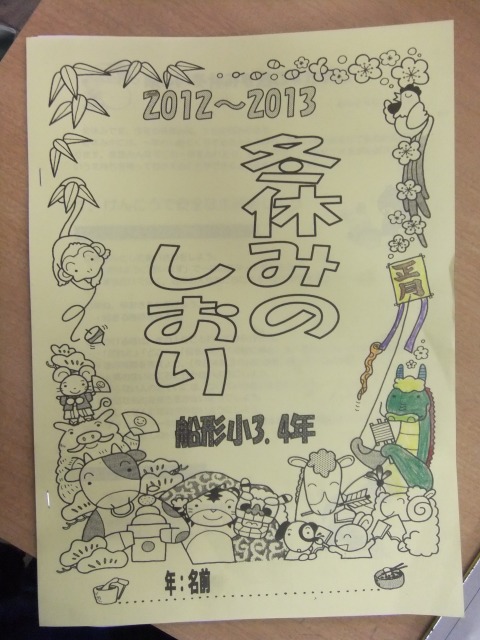 2012～2013
冬休みの
しおり
正月
船形小3.4年
年:名前